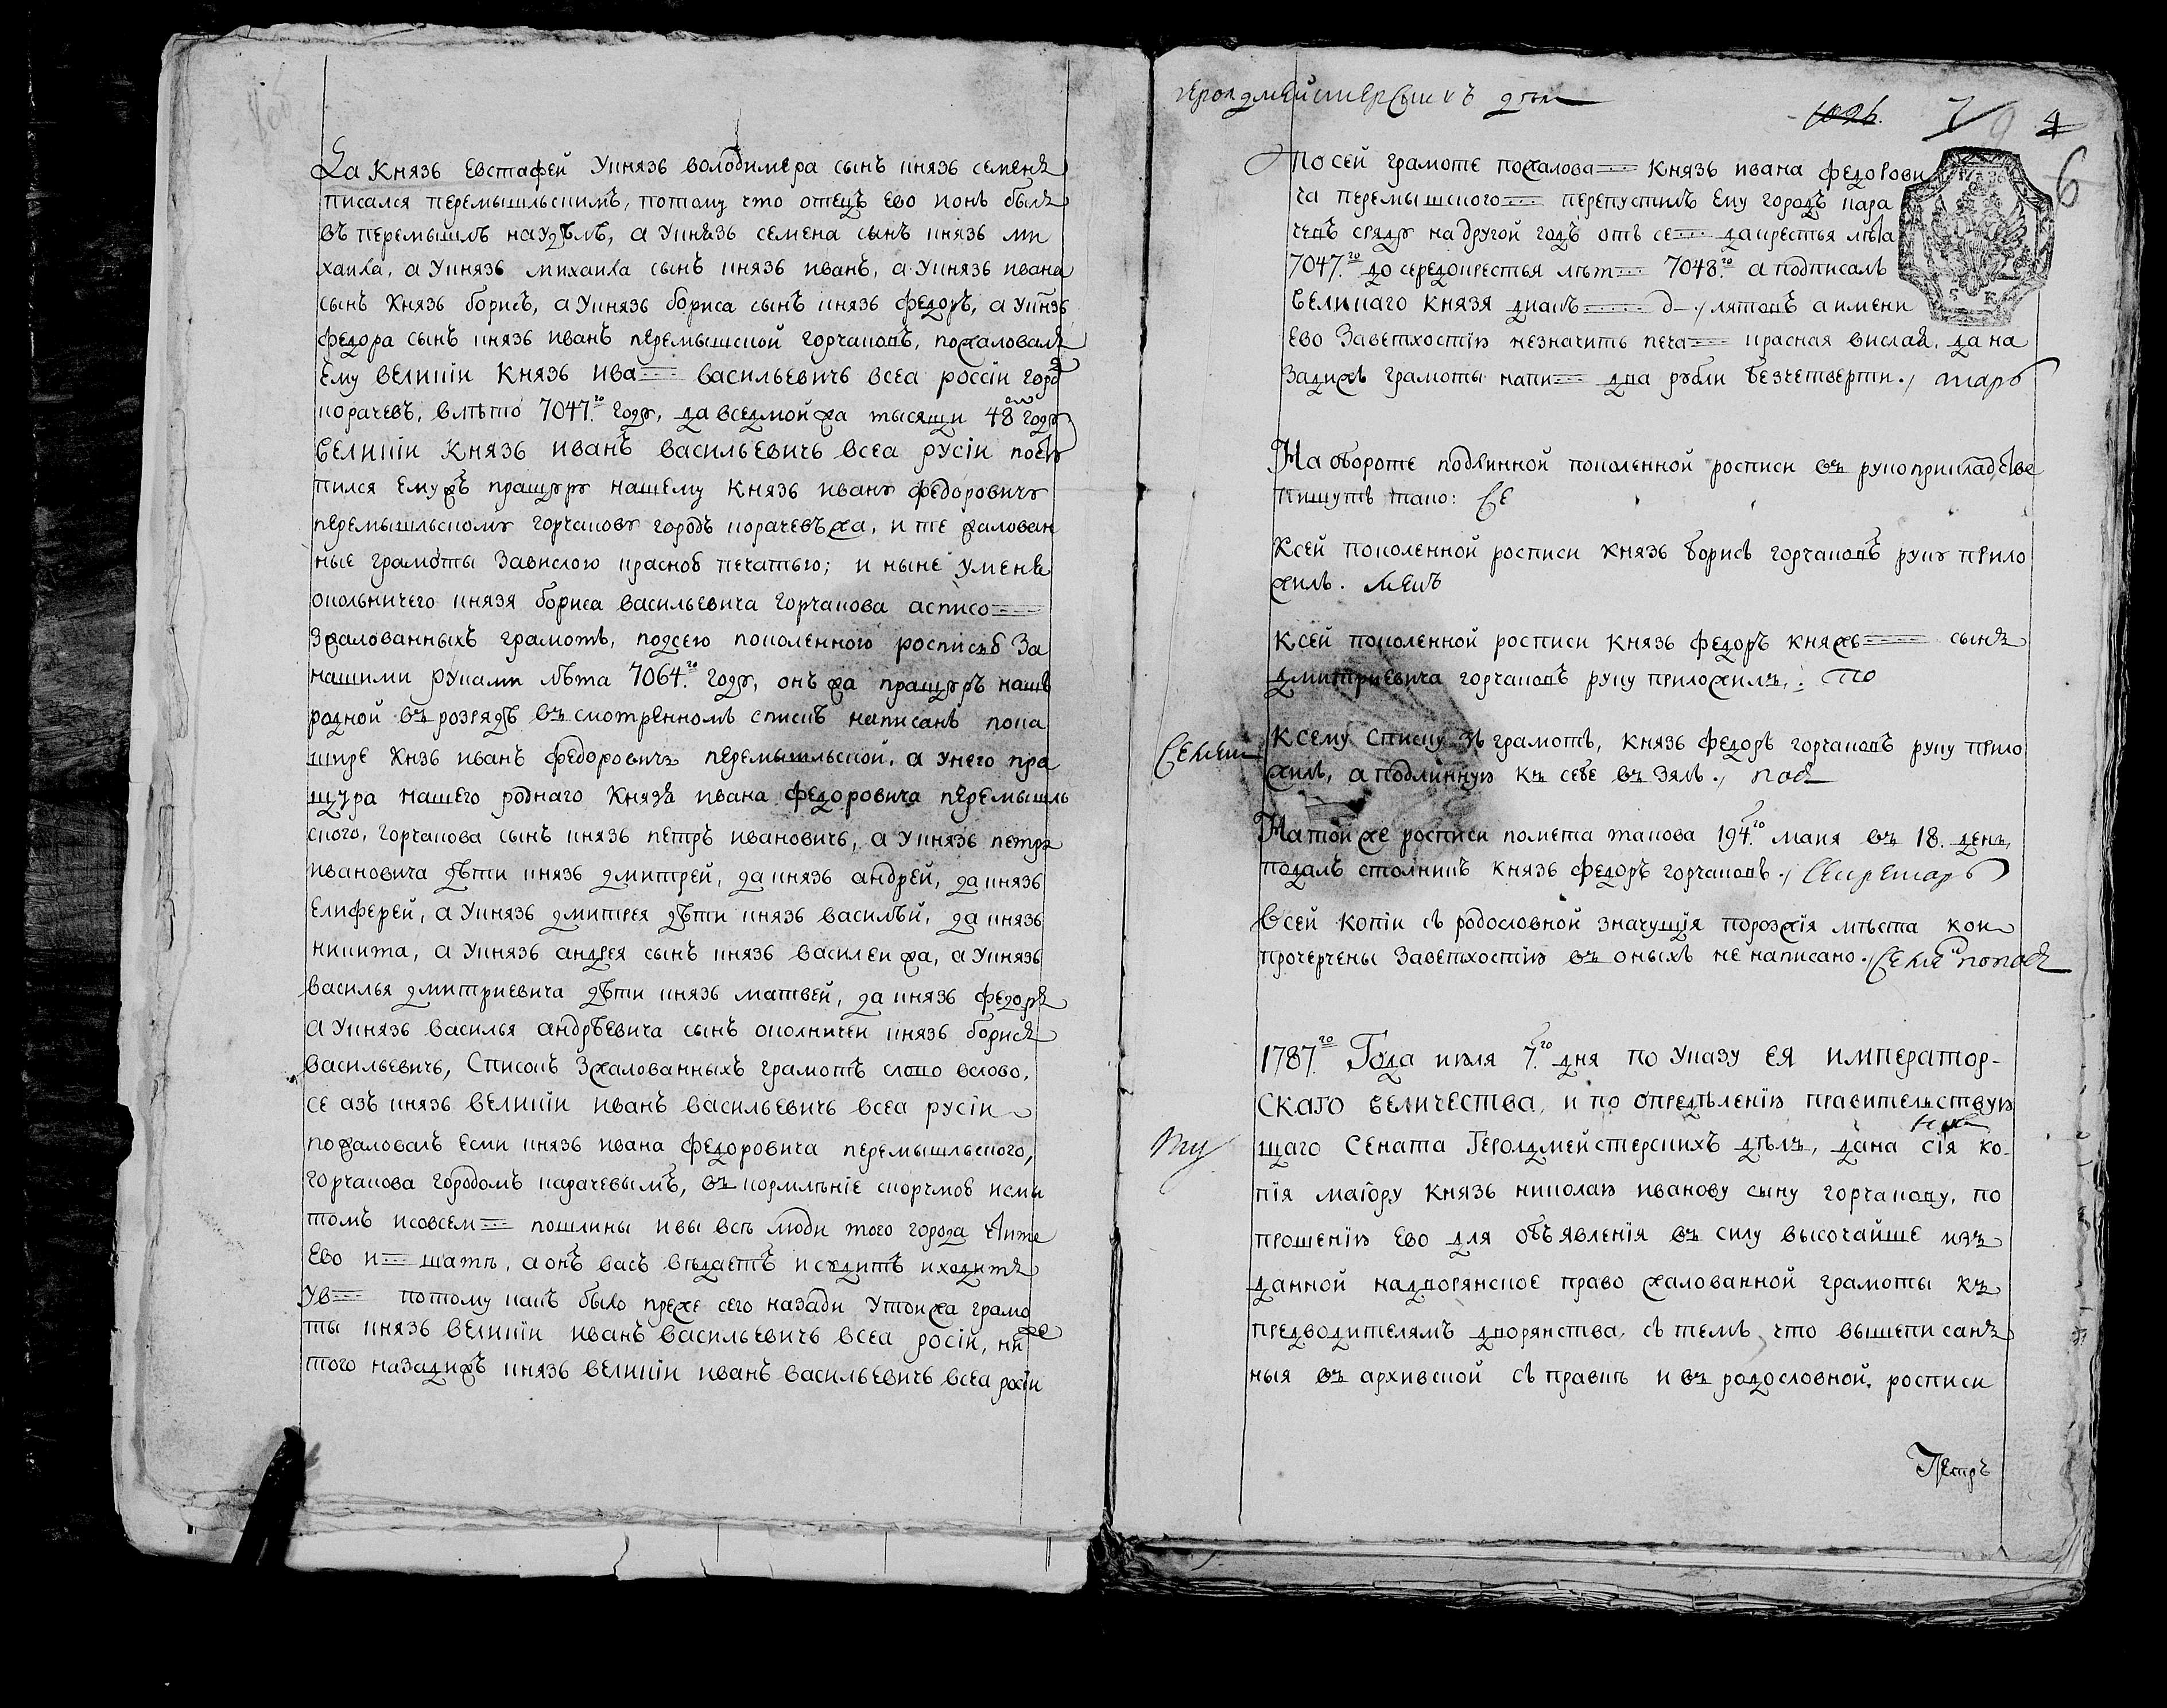 да Князь Евстафей Укнязь володимера сынъ князь семенъ
писался перемышльскимъ, потому что отецъ ево конъ былъ
въ перемышлѣ наудѣлѣ, а Укнязь семена сынъ князь ми
хаила, а Укнязь михаила сынъ князь иванъ, а Укнязь ивана
сынъ Князь борисъ, а Укнязь бориса сынъ князь федоръ, а Укнзь
федора сынъ князь иванъ перемышской горчаковъ, пожаловалъ
ему великіи Князь ива васильевичь всеа россіи город
корачевъ, влѣто 7047.го году, да вседмойжа тысящи 48 году
великіи Князь иванъ васильевичь всеа русіи
тился емужъ пращуру нашему Князь ивану федоровичу
перемышльскому горчакову городъ корачевъжа, и те жалован
ные грамоты Зависловою красною печатью; и ныне Уменя
околничего князя бориса васильевича Горчакова асписо
Зжалованныхъ грамотъ, подсею поколенною росписью За
нашими руками лѣта 7064.го году, онъ жа пращуръ нашъ
родной въ розрядѣ въ смотренномъ спискѣ написанъ пока
шире Кнзь иванъ федоровичъ перемышльской, а Унего пра
щура нашего роднаго Князя ивана федоровича перемышль
ского, Горчакова сынъ князь петръ ивановичь, а Укнязь петра
ивановича дѣти князь дмитрей, да князь андрей, да князь
Елиферей, а Укнязь дмитрея дѣти князь василѣй, да князь
никита, а Укнязь андрея сынъ князь василеи жа, а Укнязь
василья дмитриевича дѣти князь матвей, да князь федоръ
а Укнязь василья андрѣевича сынъ околничеи князь борисъ
васильевичь, Списокъ Зжалованныхъ грамотъ слово вслово.
се азъ князь великіи иванъ васильевичь всеа русіи
пожаловалъ есми князь ивана федоровича перемышльского,
горчакова городомъ карачевымъ, въ кормлѣніе скорчмою исмы
томъ исовсем пошлины ивы всѣ люди того города чтите
Ево и шати, а онъ васъ вѣдаетъ исудитъ иходитъ
Ув потому какъ было преже сего назади Утоижа грамо
ты князь великіи иванъ васильевичь всеа росіи, ниже
того назадижъ князь великіи иванъ васильевичь всеа росіи
герольдмейстерскихъ дѣлъ
1026. 7 9 4
6
По сей грамоте пожалова Князь ивана федорови
ча перемышского перепустилъ ему городъ кара
чевъ сряду надругой годъ отъ се дакрестья лѣта
7047.го до середокрестья лѣт 7048.го а подписалъ
великаго Князя диакъ д лятовъ а имени
ево Заветхостію незначитъ печа красная вислая, да на
Задижъ грамоты напи два рубли безчетверти. тарь
На обороте подлинной поколенной росписи въ рукоприкладстве
пишутъ тако: Се
Ксей поколенной росписи князь борисъ горчаковъ руку прило
жилъ.
Ксей поколенной росписи Князь федоръ княжь сынъ
дмитриевича горчаковъ руку приложилъ. то
Ксему списку зъ грамотъ, князь федоръ горчаковъ руку прило
жилъ, а подлинную къ себе въ Зялъ.
На той же росписи помета такова 194.го маия въ 18. день,
подалъ столникъ князь федоръ горчаковъ. Секретарь
Всей копіи съ родословной значущія порозжія мѣста кои
прочерчены Заветхостію въ оныхъ не написано.
1787.го Года июля 7.го дня по Указу ея император-
скаго величества, и по опредѣленію правительствую
щаго Сената Герольдмейстерскихъ дѣлъ, дана сія ко-
ту
пія маіору князь николаю иванову сыну горчакову, по
прошенію ево для объявленія въ силу высочайше изъ
данной надворянское право жалованной грамоты къ
предводителямъ дворянства, съ темъ что вышеписанъ
ныя въ архивской съ правкѣ и въ родословной росписи
Петръ